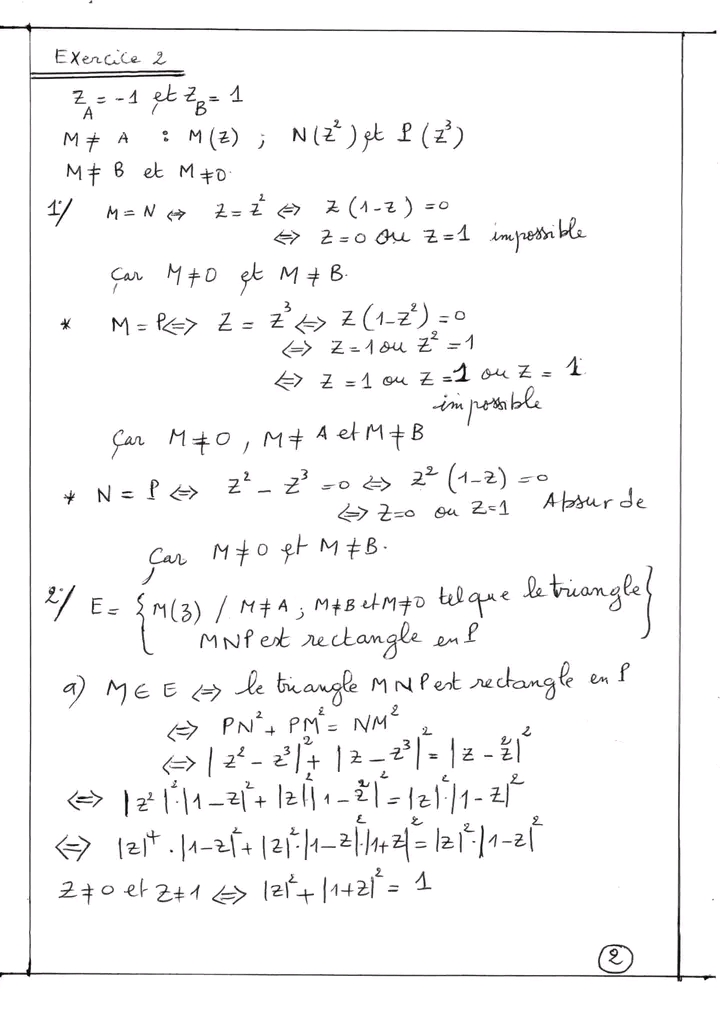 Exercice 2
Z_A = -1 et Z_B = 1
M ≠ A : M(Z) ; N(Z²) et P(Z³)
M ≠ B et M ≠ 0.
1°/ M = N ⇔ Z = Z² ⇔ Z(1-Z) = 0
⇔ Z = 0 ou Z = 1 impossible
Car M ≠ 0 et M ≠ B.
* M = P ⇔ Z = Z³ ⇔ Z(1-Z²) = 0
⇔ Z = 1 ou Z² = 1
⇔ Z = 1 ou Z = 1 ou Z = 1
impossible
Car M ≠ 0, M ≠ A et M ≠ B
* N = P ⇔ Z² - Z³ = 0 ⇔ Z²(1-Z) = 0
⇔ Z = 0 ou Z = 1 Absurde
Car M ≠ 0 et M ≠ B.
2°/ E = {M(3) / M ≠ A ; M ≠ B et M ≠ 0 tel que le triangle
MNP est rectangle en P}
a) M ∈ E ⇔ le triangle MNP est rectangle en P
⇔ PN² + PM² = NM²
⇔ |Z² - Z³|² + |Z - Z³|² = |Z - Z²|²
⇔ |Z²|².|1-Z|² + |Z|²|1-Z²|² = |Z|².|1-Z|²
⇔ |Z|⁴.|1-Z|² + |Z|².|1-Z|².|1+Z|² = |Z|².|1-Z|²
Z ≠ 0 et Z ≠ 1 ⇔ |Z|² + |1+Z|² = 1
2